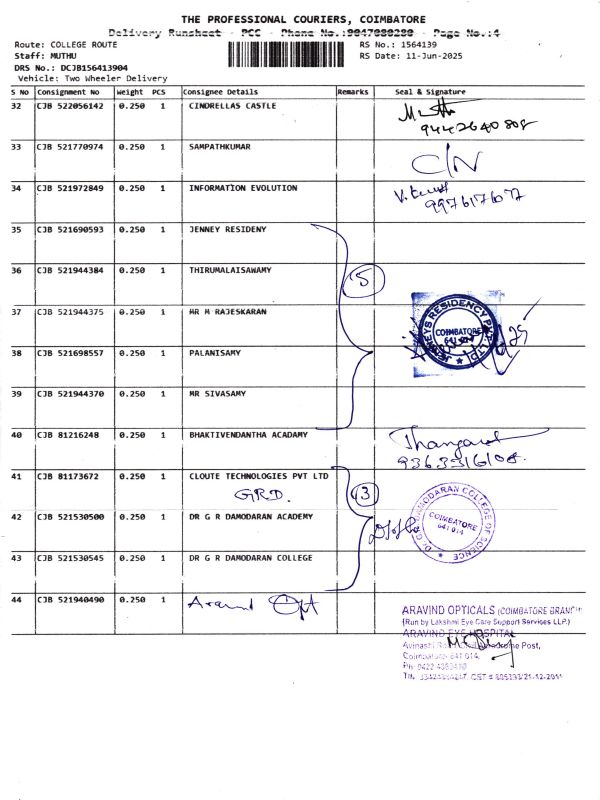 THE PROFESSIONAL COURIERS, COIMBATORE
Delivery Runsheet - PCC - Phone No.: - Page No.:4
Route: COLLEGE ROUTE
RS No.: 1564139
Staff: MUTHU
RS Date: 11-Jun-2025
DRS No.: DCJB156413904
Vehicle: Two Wheeler Delivery
S No Consignment No Weight PCS Consignee Details Remarks Seal & Signature
32 CJB 522056142 0.250 1 CINDRELLAS CASTLE
9442640808
33 CJB 521770974 0.250 1 SAMPATHKUMAR
C/N
34 CJB 521972849 0.250 1 INFORMATION EVOLUTION
9976176077
35 CJB 521690593 0.250 1 JENNEY RESIDENY
36 CJB 521944384 0.250 1 THIRUMALAISAWAMY
5
37 CJB 521944375 0.250 1 MR M RAJESKARAN
JENNEYS RESIDENCY PVT. LTD
COIMBATORE
641 014
38 CJB 521698557 0.250 1 PALANISAMY
39 CJB 521944370 0.250 1 MR SIVASAMY
40 CJB 81216248 0.250 1 BHAKTIVENDANTHA ACADAMY
Thangaraj
9363316108
41 CJB 81173672 0.250 1 CLOUTE TECHNOLOGIES PVT LTD
GRD.
3
42 CJB 521530500 0.250 1 DR G R DAMODARAN ACADEMY
Dr G R DAMODARAN COLLEGE OF SCIENCE
COIMBATORE
641 014
43 CJB 521530545 0.250 1 DR G R DAMODARAN COLLEGE
44 CJB 521940490 0.250 1 Aravind Opt
ARAVIND OPTICALS (COIMBATORE BRANCH)
(Run by Lakshmi Eye Care Support Services LLP.)
ARAVIND EYE HOSPITAL
Avinashi Road, Civil Aerodrome Post,
Coimbatore 641 014.
Ph: 0422 4360400
CST # 805333/21-12-2011